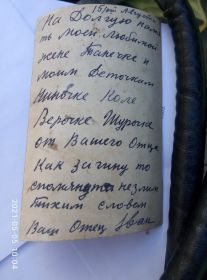 15/VIII Августа
На Долгую пам
ть моей Любимой
жене Танечке и
моим деточкам
Ниночке Коле
Верочке Шурочке
от Вашего Отца
Как загину то
спомянута незлим
тихим словом
Ваш Отец Іван
2021-05-05 10:04